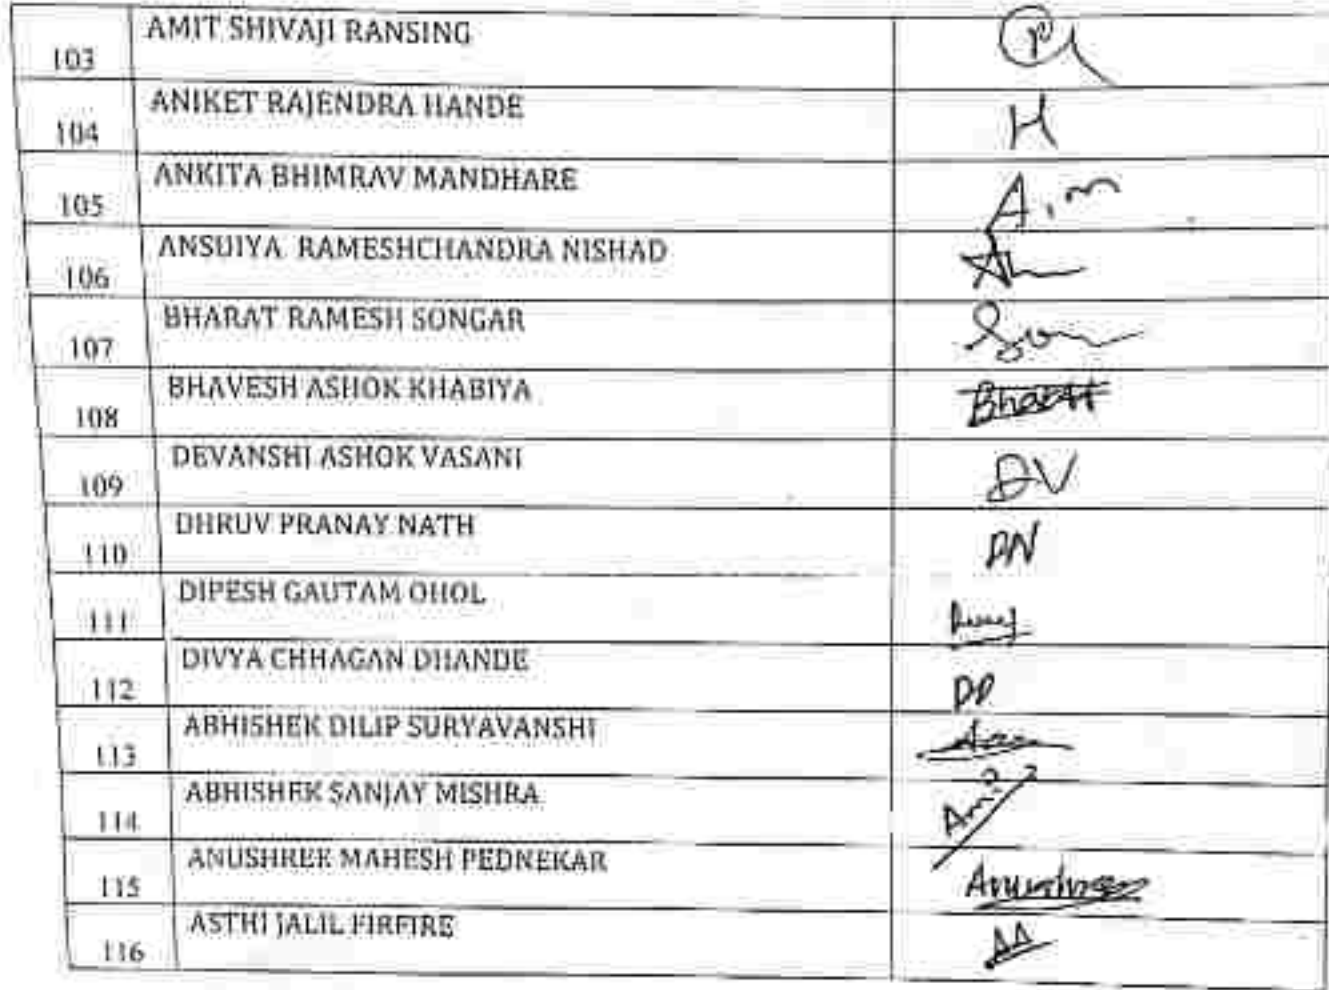 103 AMIT SHIVAJI RANSING
104 ANIKET RAJENDRA HANDE H
105 ANKITA BHIMRAV MANDHARE A.m
106 ANSUIYA RAMESHCHANDRA NISHAD
107 BHARAT RAMESH SONGAR
108 BHAVESH ASHOK KHABIYA
109 DEVANSHI ASHOK VASANI DV
110 DHRUV PRANAY NATH DN
111 DIPESH GAUTAM OHOL
112 DIVYA CHHAGAN DHANDE DD
113 ABHISHEK DILIP SURYAVANSHI
114 ABHISHEK SANJAY MISHRA
115 ANUSHREE MAHESH PEDNEKAR
116 ASTHI JALIL FIRFIRE